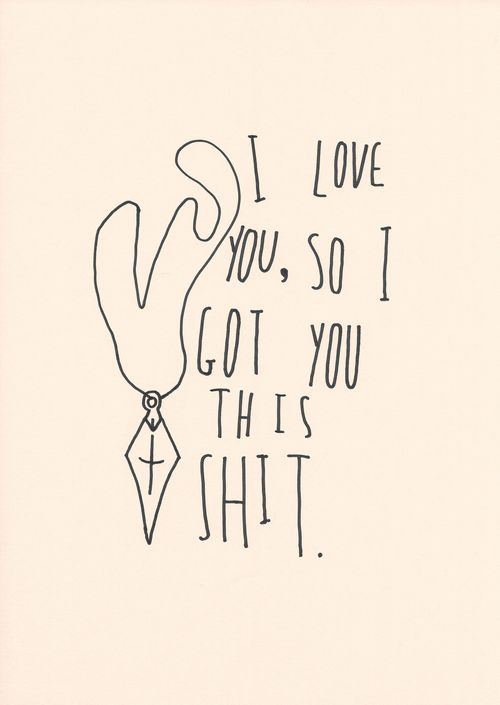 I LOVE
YOU, SO I
GOT YOU
THIS
SHIT.